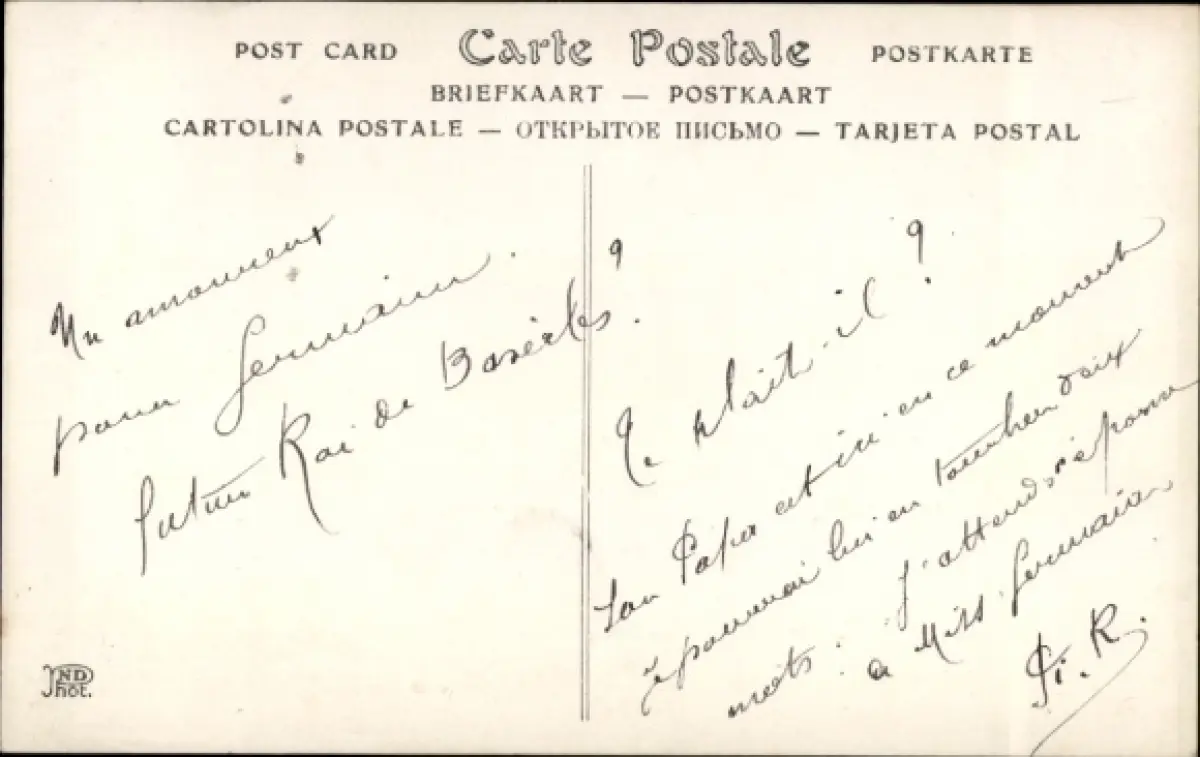 POST CARD Carte Postale POSTKARTE
BRIEFKAART — POSTKAART
CARTOLINA POSTALE — ОТКРЫТОЕ ПИСЬМО — TARJETA POSTAL
Un amoureux
pour Germaine.
futur Roi de ?
plait-il ?
Son Papa est ici en ce moment
je pourrai lui en toucher deux
mots. J'attends réponse
a Miss Germaine
R.
ND
Phot.